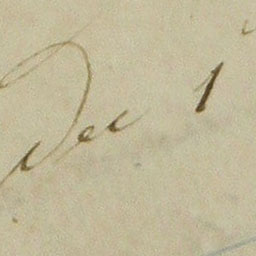 Dec 1